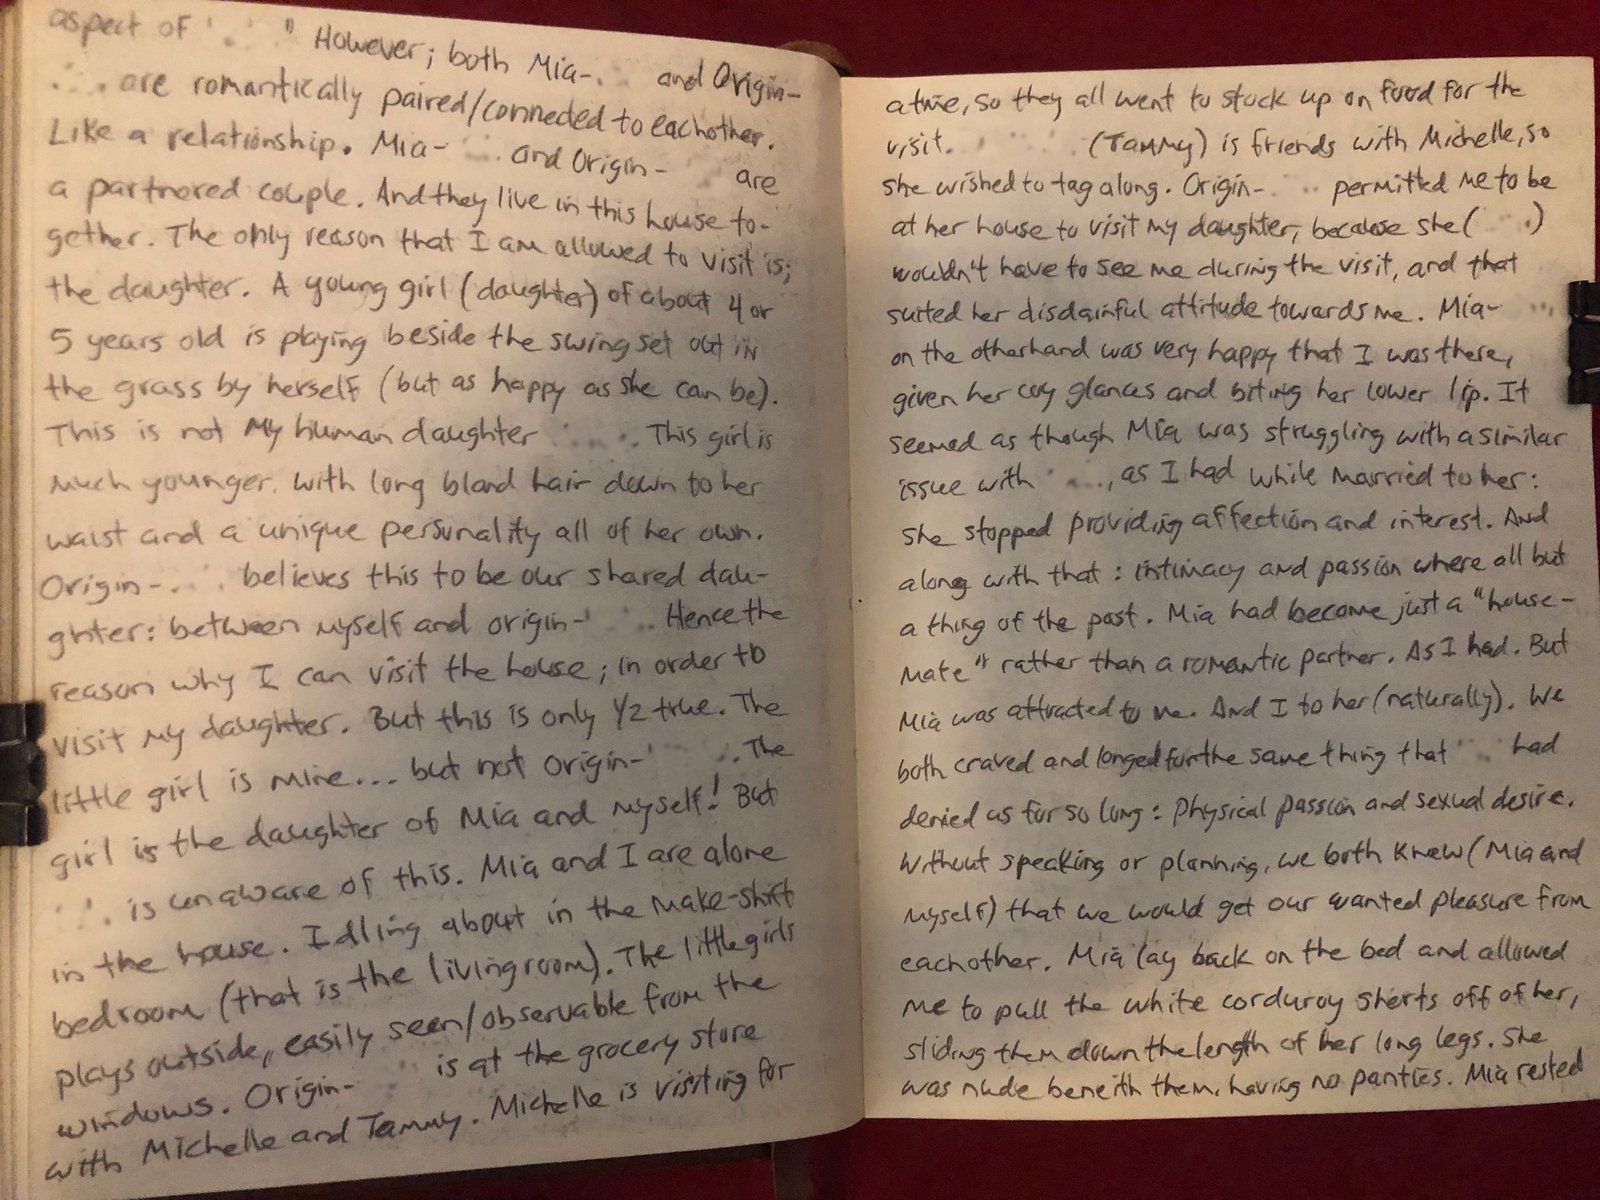 aspect of " However; both Mia- and Origin-
are romantically paired/conneded to eachother.
Like a relationship. Mia- and Origin- are
a partnered couple. And they live in this house to-
gether. The only reason that I am allowed to visit is;
the daughter. A young girl (daughter) of about 4 or
5 years old is playing beside the swing set out in
the grass by herself (but as happy as she can be).
This is not my human daughter . This girl is
much younger. With long bland hair down to her
waist and a unique personality all of her own.
Origin- believes this to be our shared dau-
ghter: between myself and origin- . Hence the
reason why I can visit the house; in order to
visit my daughter. But this is only 1/2 true. The
little girl is mine... but not Origin- . The
girl is the daughter of Mia and myself! But
is unaware of this. Mia and I are alone
in the house. Idling about in the make-shift
bedroom (that is the livingroom). The little girls
plays outside, easily seen/observable from the
windows. Origin- is at the grocery store
with Michelle and Tammy. Michelle is visiting for
atime, so they all went to stock up on food for the
visit. (Tammy) is friends with Michelle, so
she wished to tag along. Origin- permitted me to be
at her house to visit my daughter, because she ( )
wouldn't have to see me during the visit, and that
suited her disdainful attitude towards me. Mia-
on the otherhand was very happy that I was there,
given her coy glances and biting her lower lip. It
seemed as though Mia was struggling with a similar
issue with , as I had while married to her:
she stopped providing affection and interest. And
along with that: intimacy and passion where all but
a thing of the past. Mia had become just a "house-
mate" rather than a romantic partner. As I had. But
Mia was attracted to me. And I to her (naturally). We
both craved and longed for the same thing that had
denied us for so long: physical passion and sexual desire.
Without speaking or planning, we both knew (Mia and
myself) that we would get our wanted pleasure from
eachother. Mia lay back on the bed and allowed
me to pull the white corduroy shorts off of her,
sliding them down the length of her long legs. She
was nude beneith them, having no panties. Mia rested